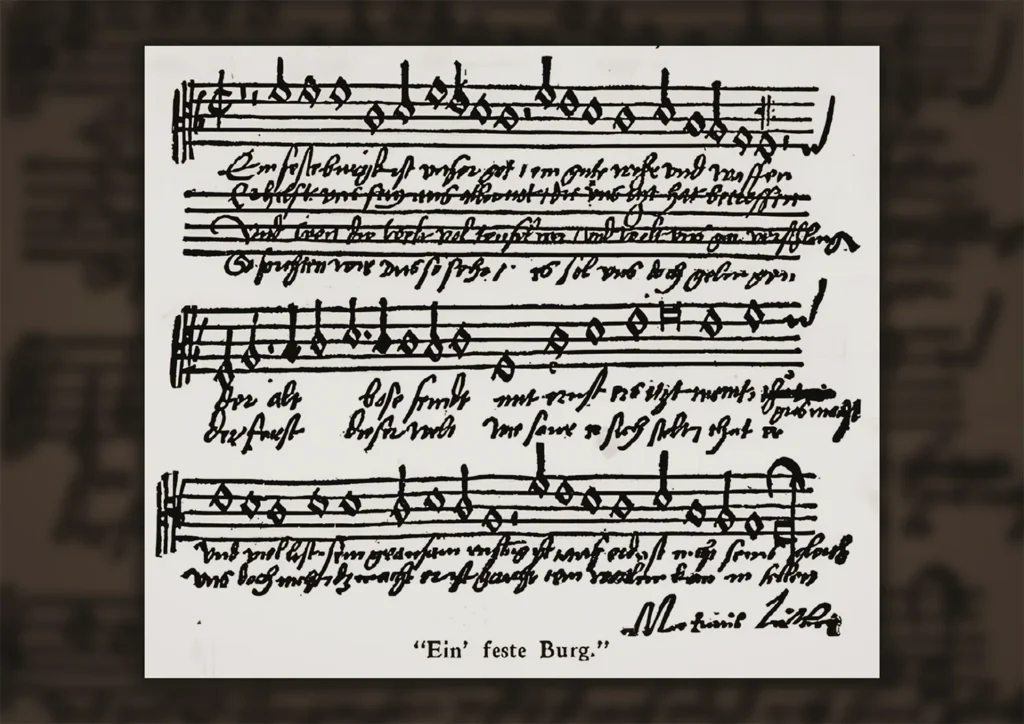 Ein feste burgk ist unser got / ein gute wehr und waffen
uns frey aus aller not / die uns hat betroffen
Und wen die welt vol teufel wer / und wolt uns gar verschling
So furchten wir uns so sehr es sol uns doch gelingen
Der alt bose feindt mit ernst ers itzt meint
gros macht
der furst dieser welt wie saur er sich stelt er
und viel list sein grausam rustung ist auf erd ist nicht seins gleich
uns doch nicht dz macht er ist gericht ein wortlin kan in fellen
Martinus Luther
“Ein’ feste Burg.”